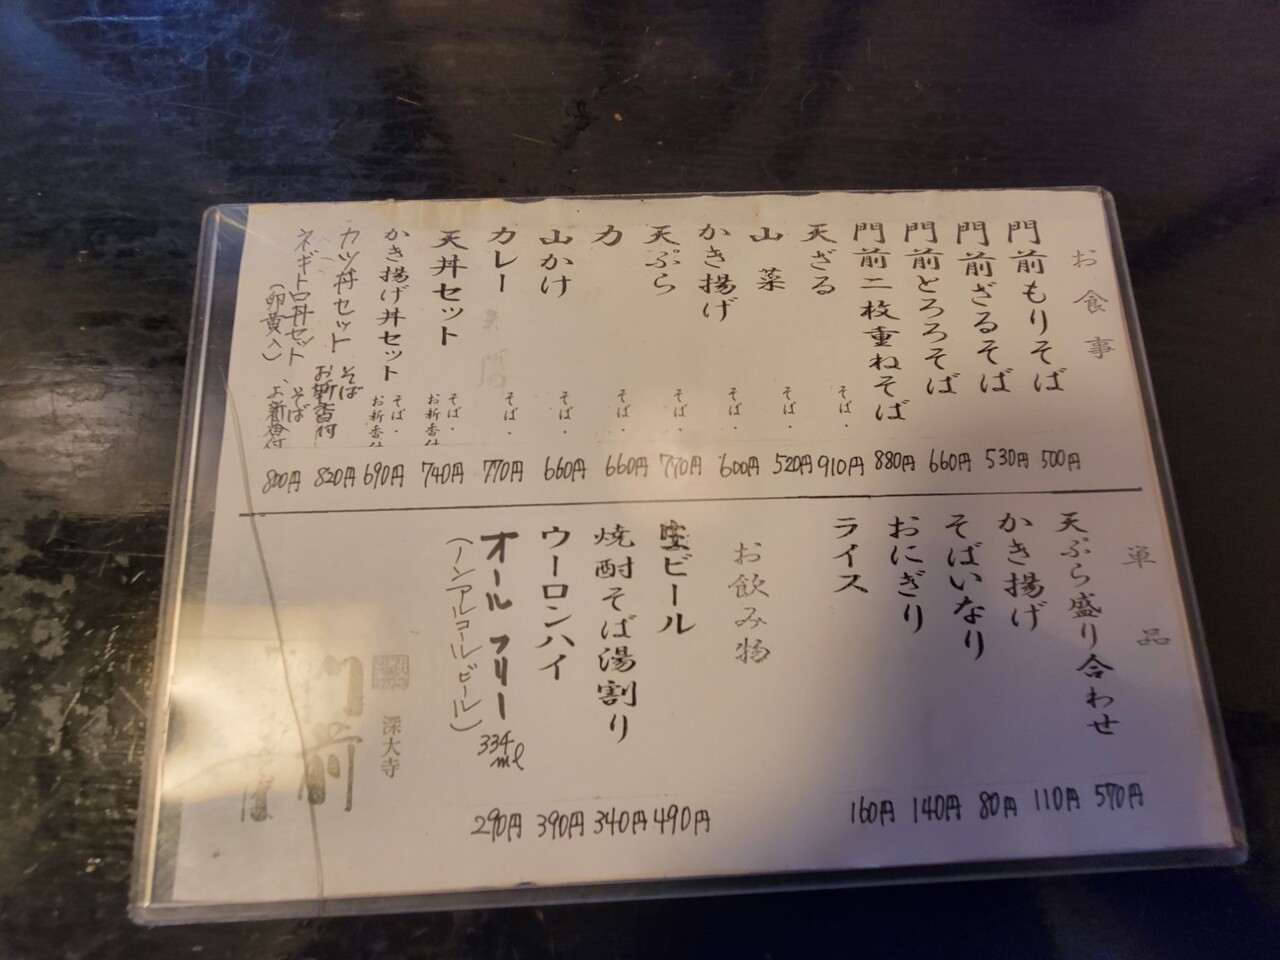 お食事
門前もりそば 500円
門前ざるそば 530円
門前とろろそば 660円
門前二枚重ねそば 880円
天ざる そば・ 910円
山菜 そば・ 520円
かき揚げ そば・ 600円
天ぷら そば・ 770円
力 そば・ 660円
山かけ そば・ 660円
カレー そば・ 770円
天丼セット そば・お新香付 740円
かき揚げ丼セット そば・お新香付 690円
カツ丼セット そば お新香付 820円
ネギトロ丼セット そば、お新香付 800円
(卵黄入)
単品
天ぷら盛り合わせ 570円
かき揚げ 110円
そばいなり 80円
おにぎり 140円
ライス 160円
お飲み物
ビール 490円
焼酎そば湯割り 340円
ウーロンハイ 390円
オールフリー 334ml 290円
(ノンアルコールビール)
深大寺
門前
そば